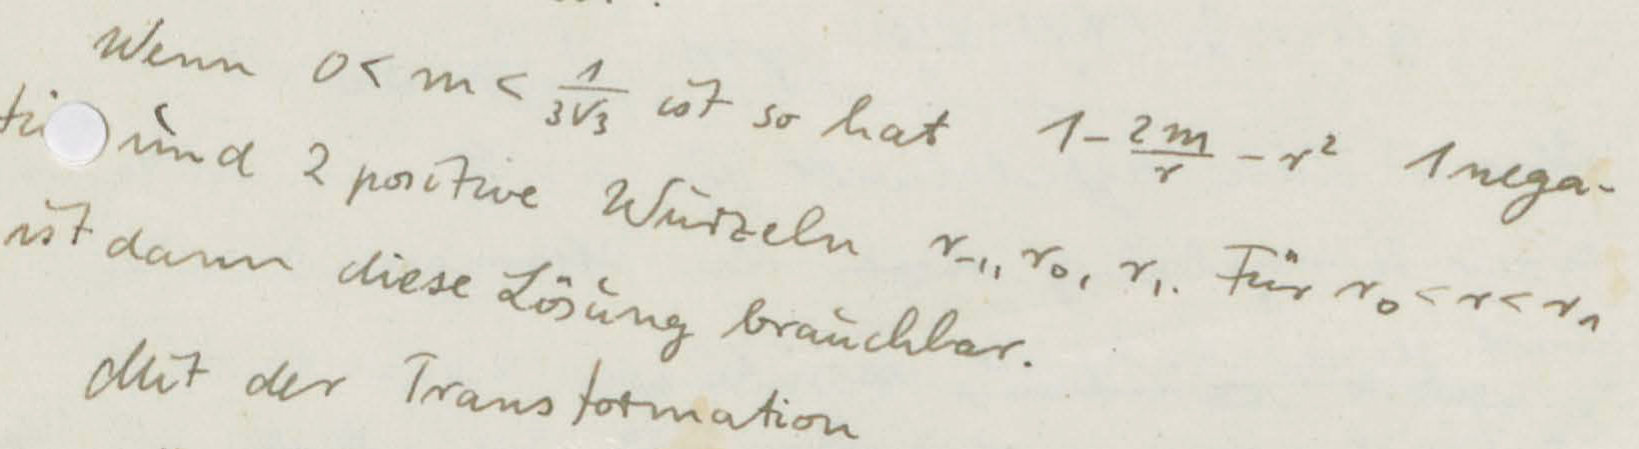 Wenn 0 < m < 1/(3√3) ist so hat 1 - 2m/r - r² 1 nega-
ti und 2 positive Wurzeln r₋₁, r₀, r₁. Für r₀ < r < r₁
ist dann diese Lösung brauchbar.
Mit der Transformation